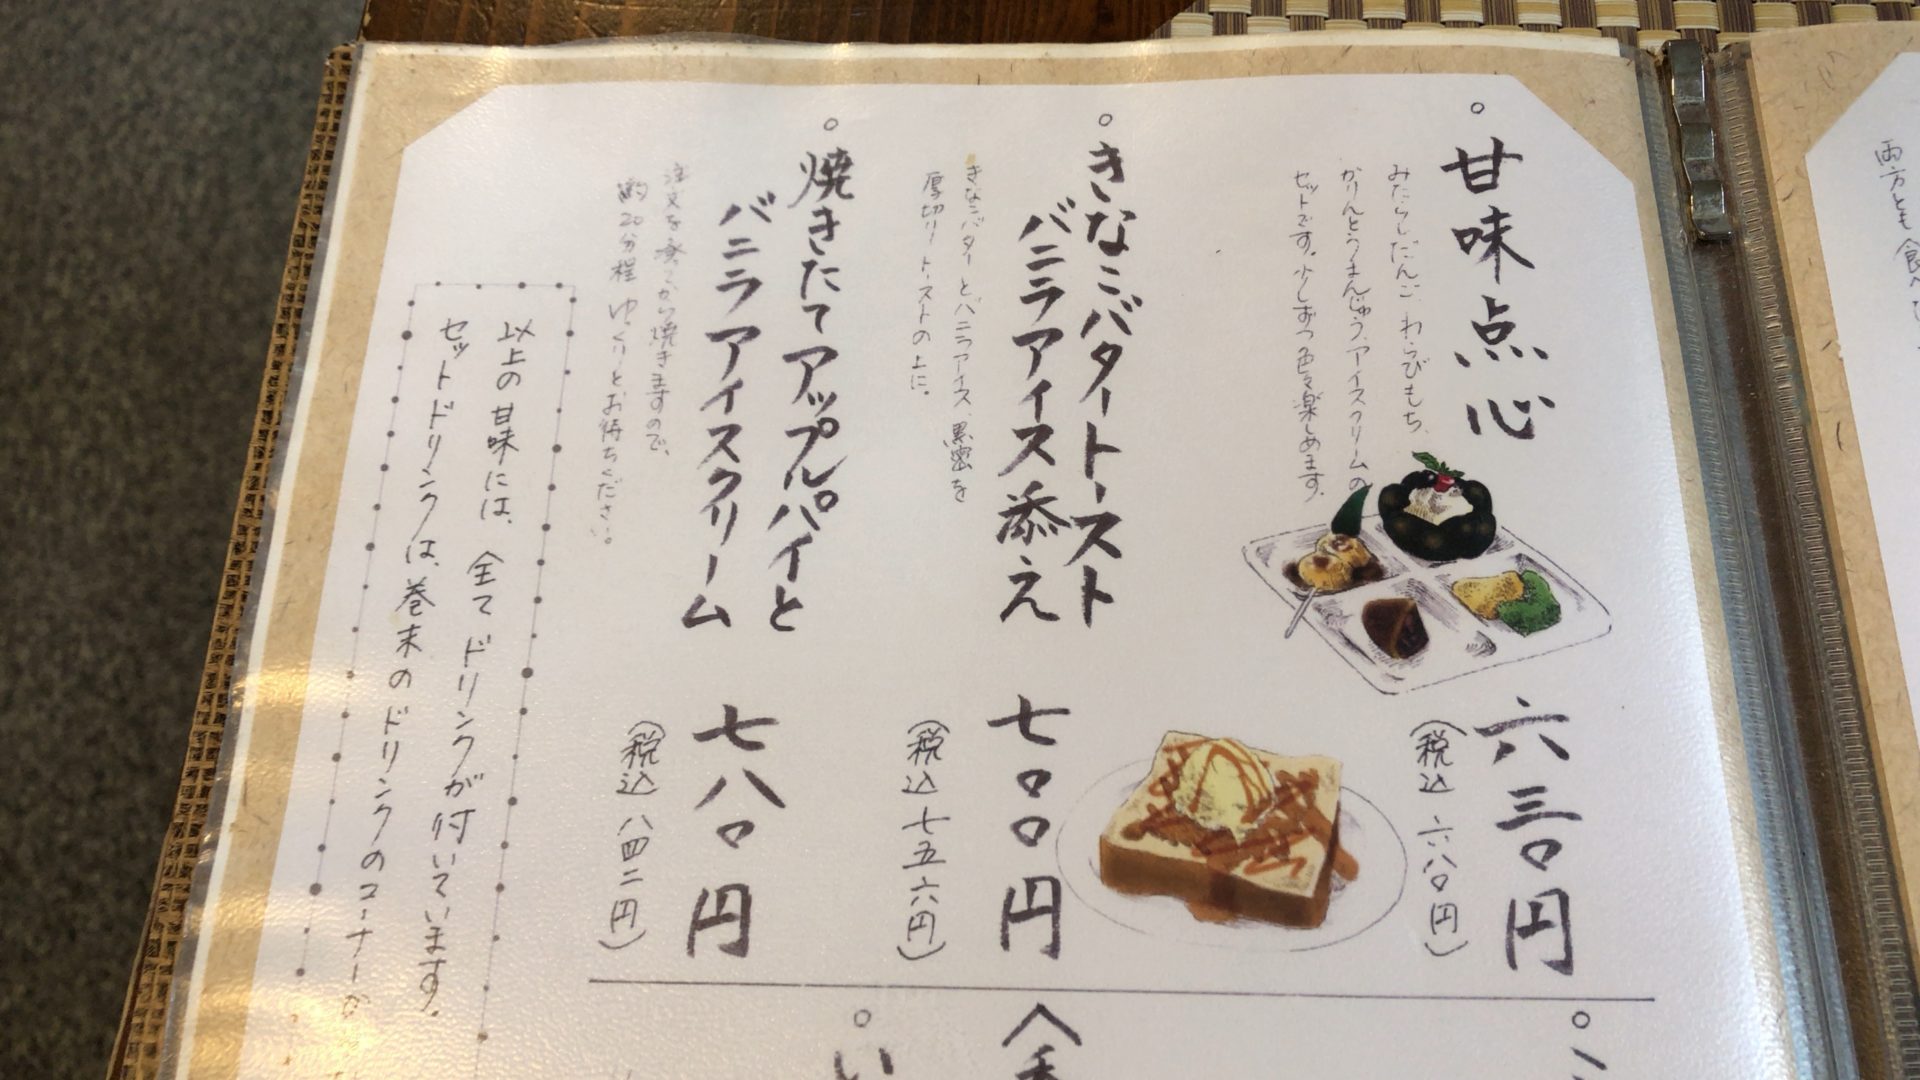 両方とも食べ
甘味点心
みたらしだんご、わらびもち、
かりんとうまんじゅう、アイスクリームの
セットです。少しずつ色々楽しめます。
六三〇円
(税込 六八〇円)
きなこバタートースト
バニラアイス添え
きなこバターとバニラアイス、黒蜜を
厚切りトーストの上に。
七〇〇円
(税込 七五六円)
焼きたてアップルパイと
バニラアイスクリーム
注文を受てから焼きますので、
約20分程ゆっくりとお待ちください。
七八〇円
(税込 八四二円)
以上の甘味には、全てドリンクが付いています。
セットドリンクは、巻末のドリンクのコーナーか
い